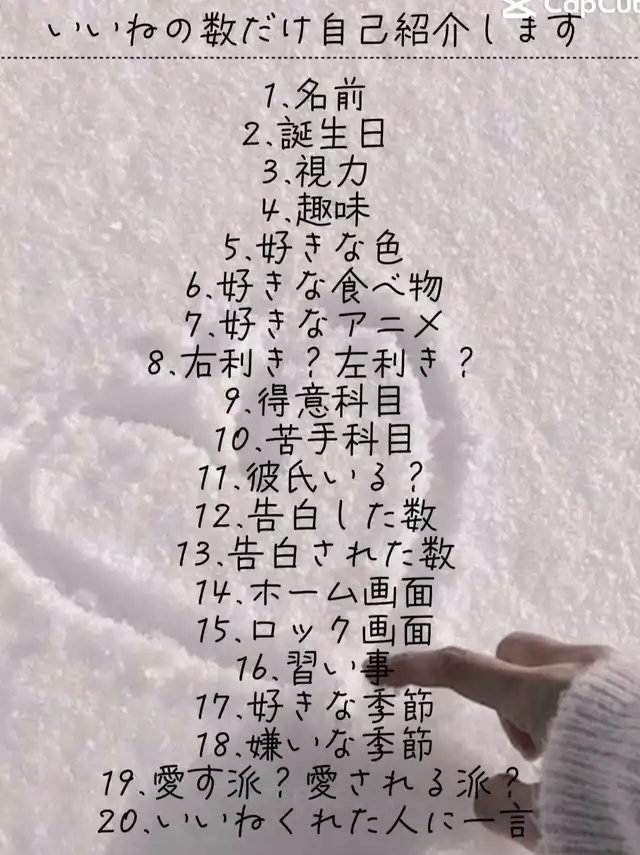 CapCut
いいねの数だけ自己紹介します
1.名前
2.誕生日
3.視力
4.趣味
5.好きな色
6.好きな食べ物
7.好きなアニメ
8.右利き？左利き？
9.得意科目
10.苦手科目
11.彼氏いる？
12.告白した数
13.告白された数
14.ホーム画面
15.ロック画面
16.習い事
17.好きな季節
18.嫌いな季節
19.愛す派？愛される派？
20.いいねくれた人に一言